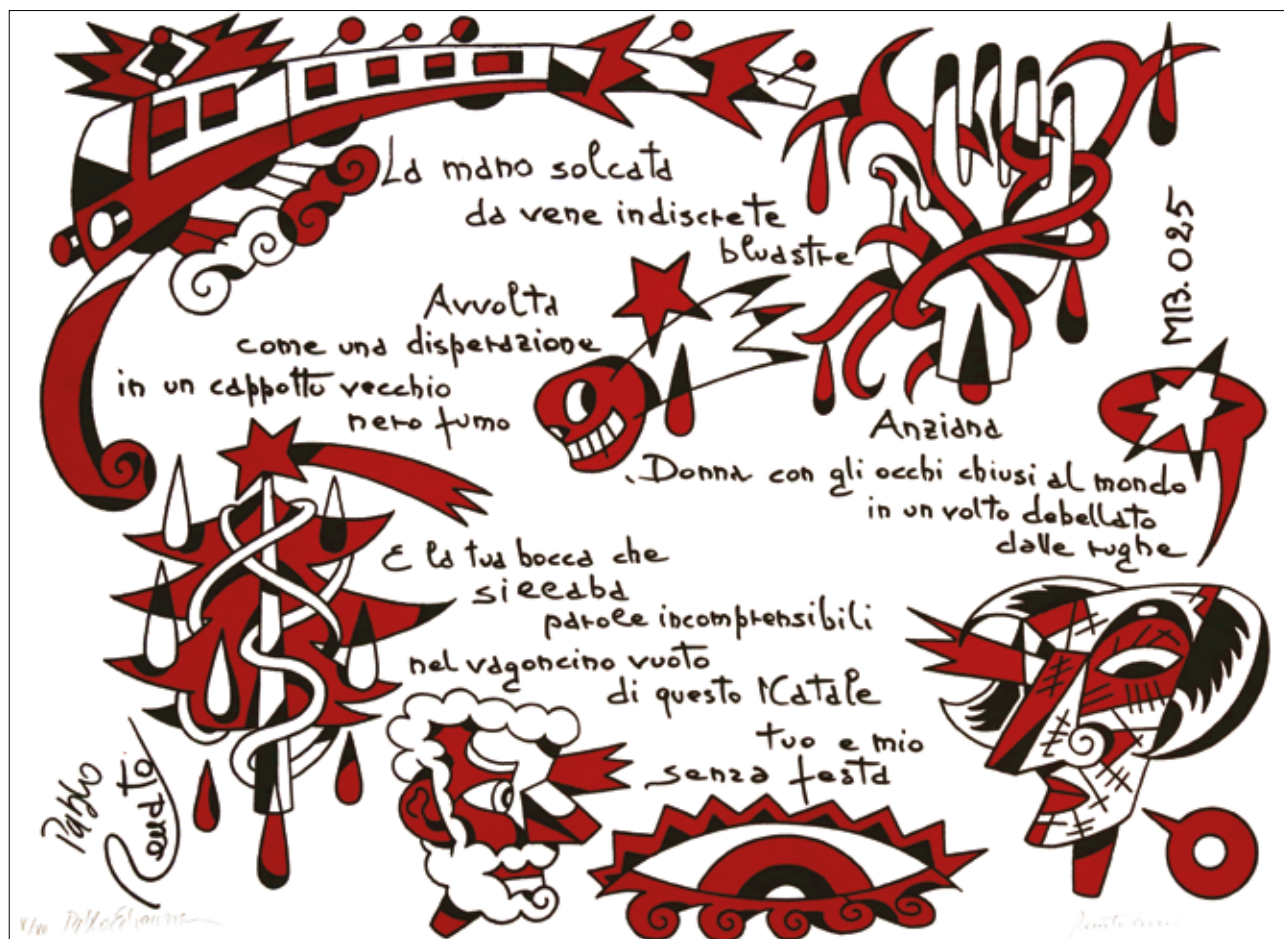 La mano solcata
da vene indiscrete
bluastre
MB.025
Avvolta
come una disperazione
in un cappotto vecchio
nero fumo
Anziana
Donna con gli occhi chiusi al mondo
in un volto debellato
dalle rughe
E la tua bocca che
siccaba
parole incomprensibili
nel vagoncino vuoto
di questo Natale
tuo e mio
senza festa
Pablo
V/VII Pablo Echaurren